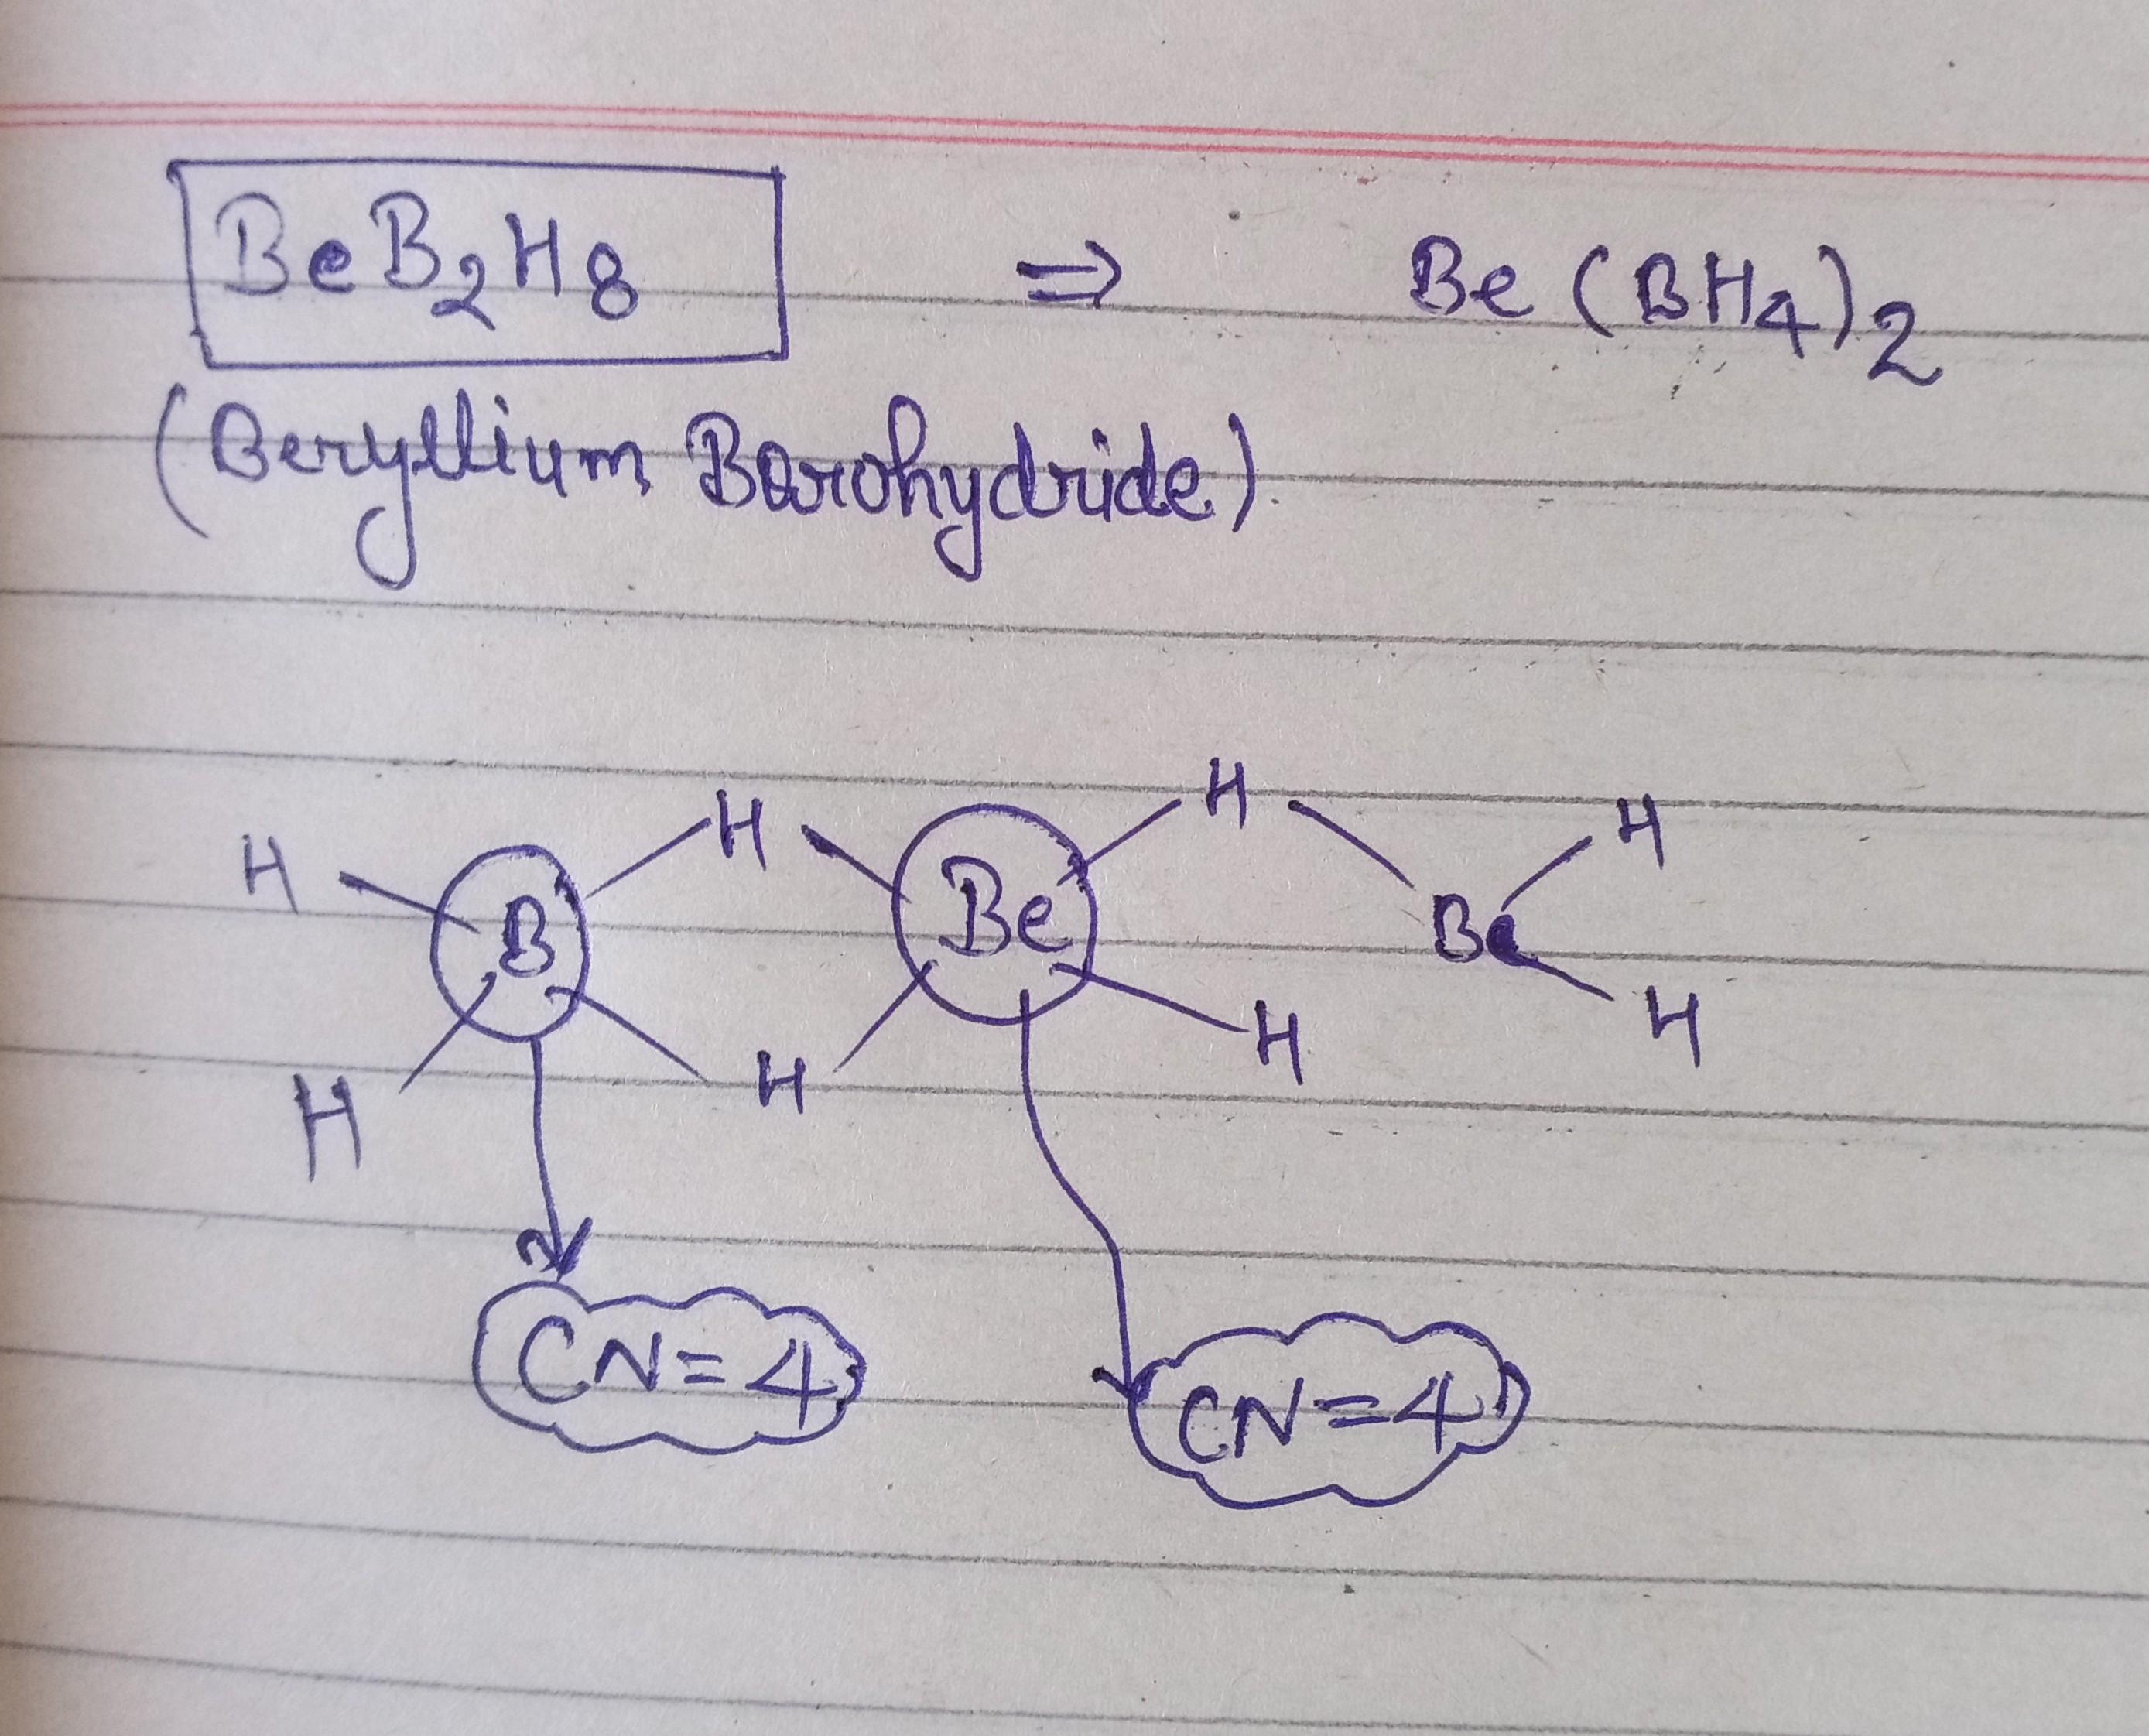 BeB₂H₈ ⇒ Be(BH₄)₂
(Beryllium Borohydride).
H H H H
B Be Be
H H H H
CN=4 CN=4